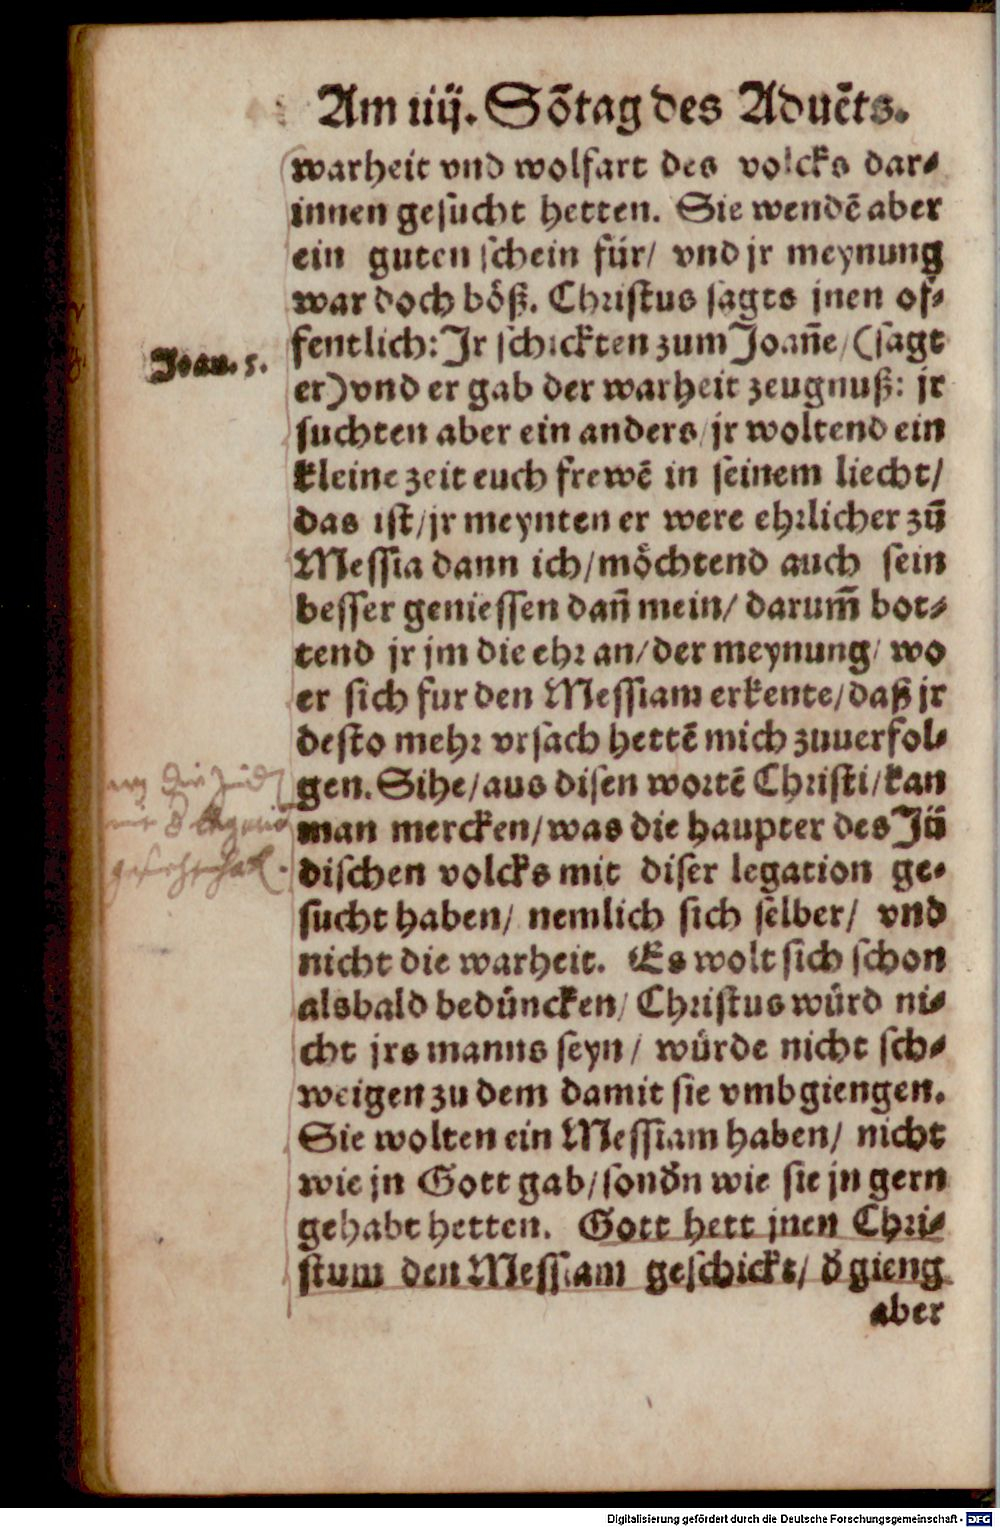 Am iiij. Sõtag des Aduẽts.
warheit vnd wolfart des volcks dar⸗
innen gesucht hetten. Sie wendẽ aber
ein guten schein für/ vnd jr meynung
war doch böß. Christus sagts jnen of⸗
fentlich: Jr schickten zum Joañe/ (sagt
Joan. 5.
er) vnd er gab der warheit zeugnuß: jr
suchten aber ein anders/ jr woltend ein
kleine zeit euch frewẽ in seinem liecht/
das ist/ jr meynten er were ehrlicher zũ
Messia dann ich/ möchtend auch sein
besser geniessen dañ mein/ darum̃ bot⸗
tend jr jm die ehr an/ der meynung/ wo
er sich fur den Messiam erkente/ daß jr
desto mehr vrsach hettẽ mich zuuerfol⸗
gen. Sihe/ aus disen wortẽ Christi/ kan
man mercken/ was die haupter des Jü
dischen volcks mit diser legation ge⸗
sucht haben/ nemlich sich selber/ vnd
nicht die warheit. Es wolt sich schon
alsbald bedüncken/ Christus würd ni⸗
cht jrs manns seyn/ würde nicht sch⸗
weigen zu dem damit sie vmbgiengen.
Sie wolten ein Messiam haben/ nicht
wie jn Gott gab/ sondn wie sie jn gern
gehabt hetten. Gott hett jnen Chri⸗
stum den Messiam geschickt/ d̃ gieng
aber
Digitalisierung gefördert durch die Deutsche Forschungsgemeinschaft - DFG